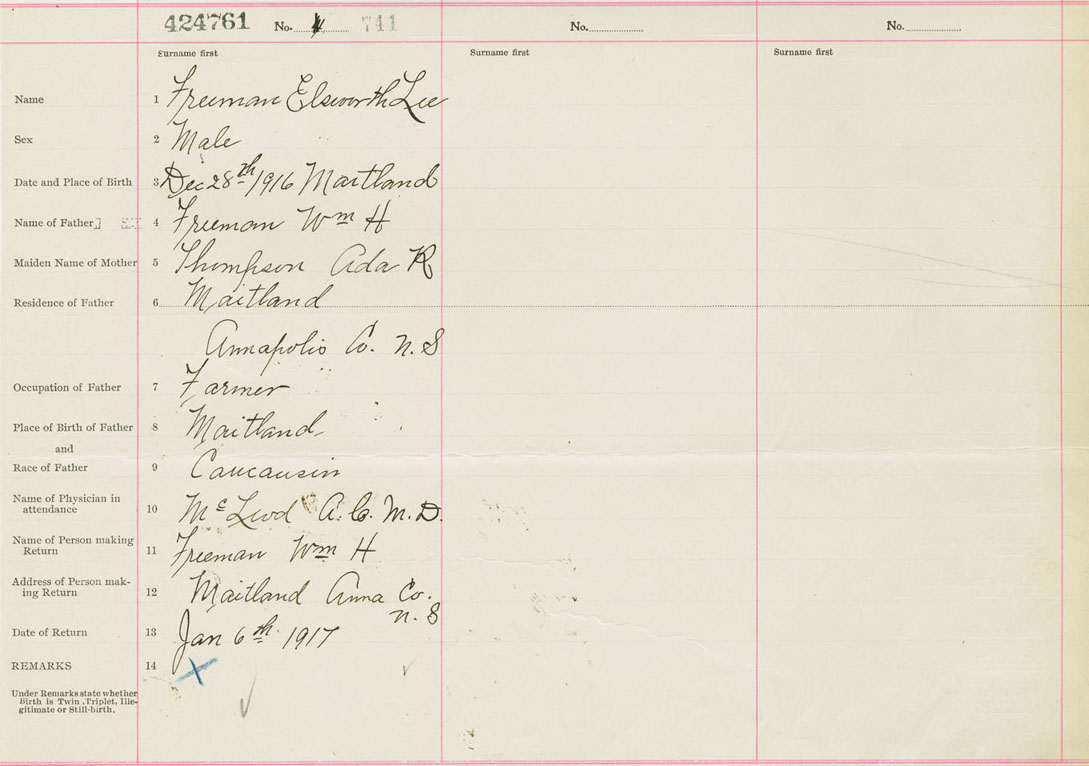 424761 No. 741
No.
No.
Surname first
Surname first
Surname first
Name 1 Freeman Elsworth Lee
Sex 2 Male
Date and Place of Birth 3 Dec 28th 1916 Maitland
Name of Father 4 Freeman Wm H
Maiden Name of Mother 5 Thompson Ada R
Residence of Father 6 Maitland
Annapolis Co. N. S
Occupation of Father 7 Farmer
Place of Birth of Father 8 Maitland
and
Race of Father 9 Caucausin
Name of Physician in
attendance 10 Mc Leod A. C. M. D.
Name of Person making
Return 11 Freeman Wm H
Address of Person mak-
ing Return 12 Maitland Anna Co.
N. S
Date of Return 13 Jan 6th 1917
REMARKS 14
Under Remarks state whether
Birth is Twin, Triplet, Ille-
gitimate or Still-birth.